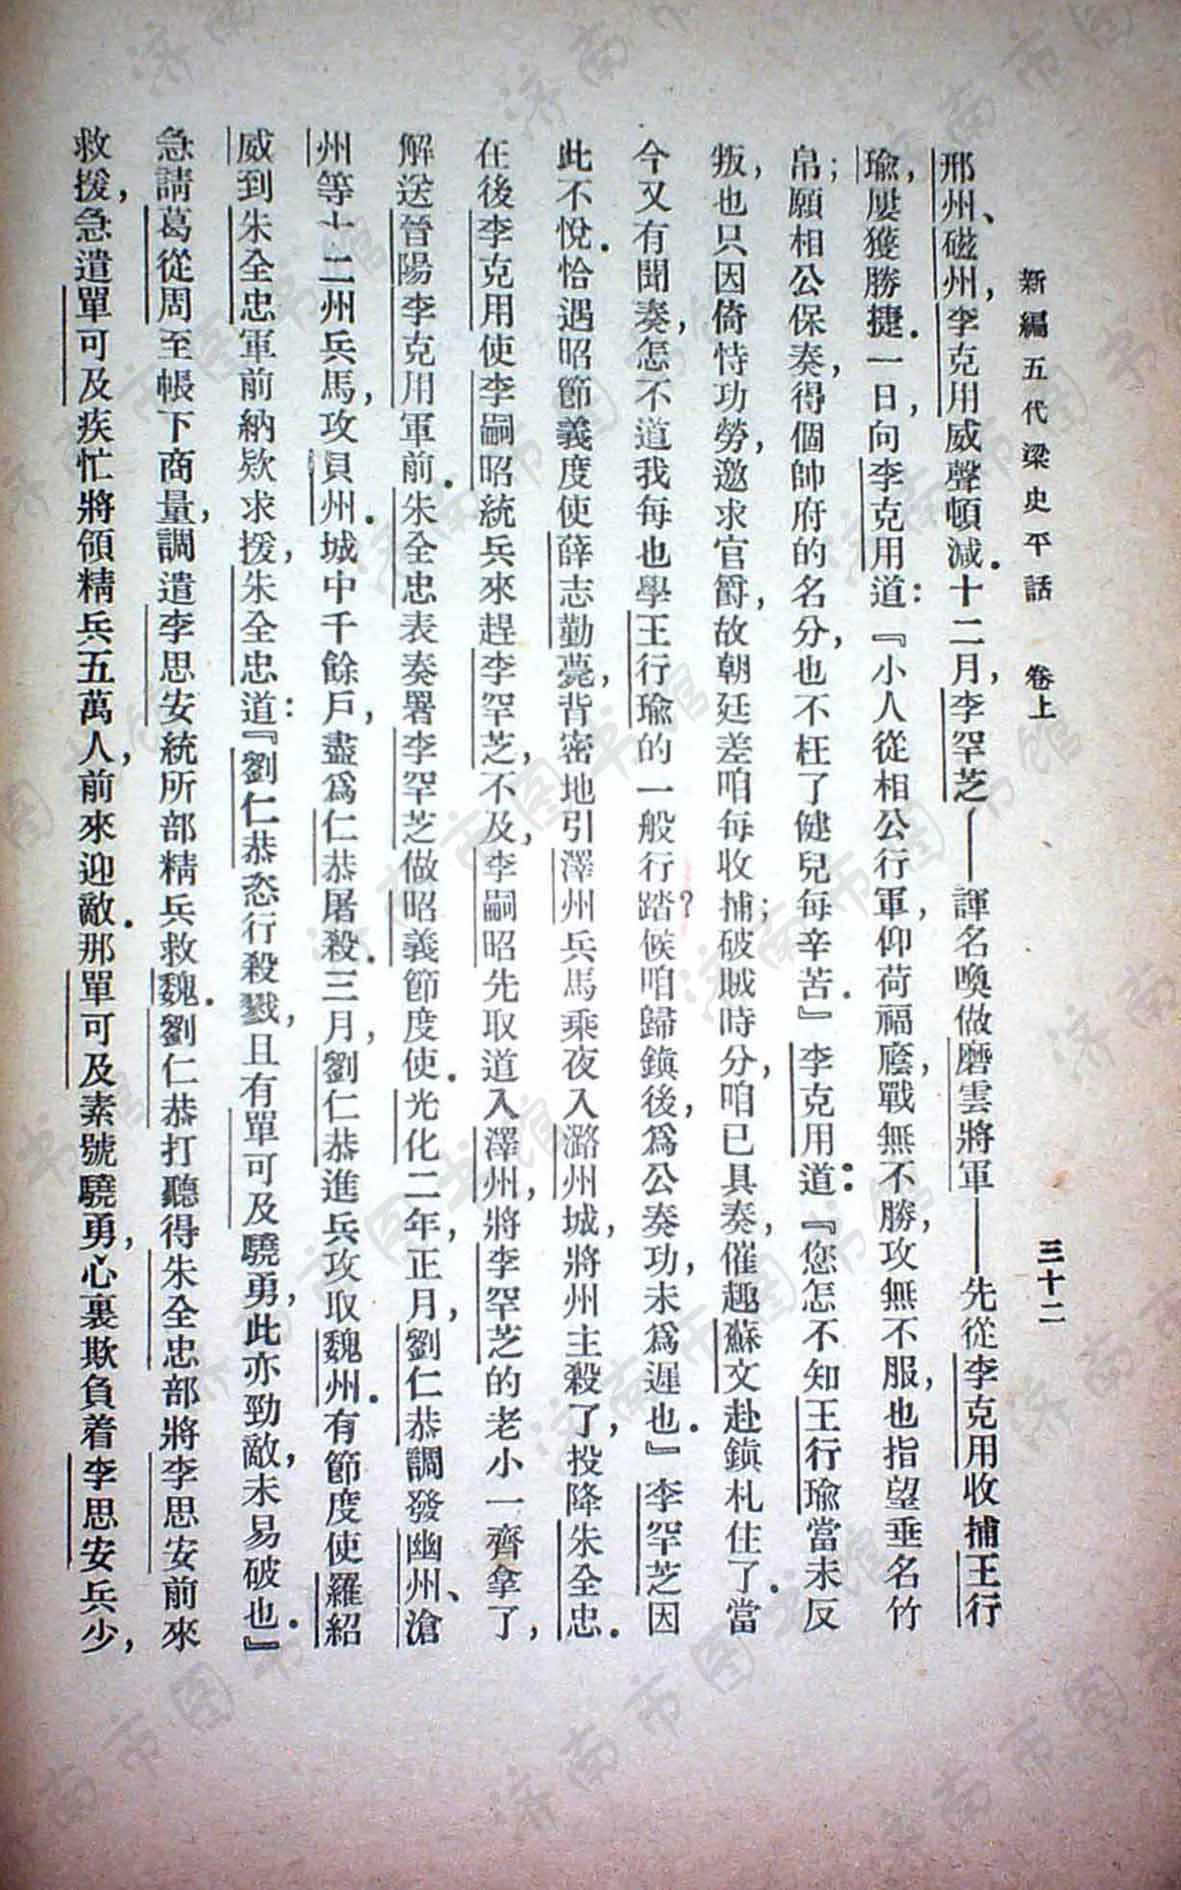 新編五代梁史平話　卷上　三十二
邢州、磁州，李克用威聲頓減．十二月，李罕芝——諢名喚做磨雲將軍——先從李克用收捕王行
瑜，屢獲勝捷．一日，向李克用道：『小人從相公行軍，仰荷福廕，戰無不勝，攻無不服，也指望垂名竹
帛；願相公保奏，得個帥府的名分，也不枉了健兒每辛苦．』李克用道：『您怎不知王行瑜當未反
叛，也只因倚恃功勞，邀求官爵，故朝廷差咱每收捕；破賊時分，咱已具奏，催趣蘇文赴鎮札住了．當
今又有聞奏，怎不道我每也學王行瑜的一般行踏？候咱歸鎮後，爲公奏功，未爲遲也．』李罕芝因
此不悅．恰遇昭節義度使薛志勤薨，背密地引澤州兵馬乘夜入潞州城，將州主殺了，投降朱全忠．
在後李克用使李嗣昭統兵來趕李罕芝，不及，李嗣昭先取道入澤州，將李罕芝的老小一齊拿了，
解送晉陽李克用軍前．朱全忠表奏署李罕芝做昭義節度使．光化二年，正月，劉仁恭調發幽州、滄
州等十二州兵馬，攻貝州．城中千餘戶，盡爲仁恭屠殺．三月，劉仁恭進兵攻取魏州．有節度使羅紹
威到朱全忠軍前納欵求援，朱全忠道：『劉仁恭恣行殺戮，且有單可及驍勇，此亦勁敵，未易破也．』
急請葛從周至帳下商量，調遣李思安統所部精兵救魏．劉仁恭打聽得朱全忠部將李思安前來
救援，急遣單可及疾忙將領精兵五萬人，前來迎敵．那單可及素號驍勇，心裏欺負着李思安兵少，
济南市图书馆